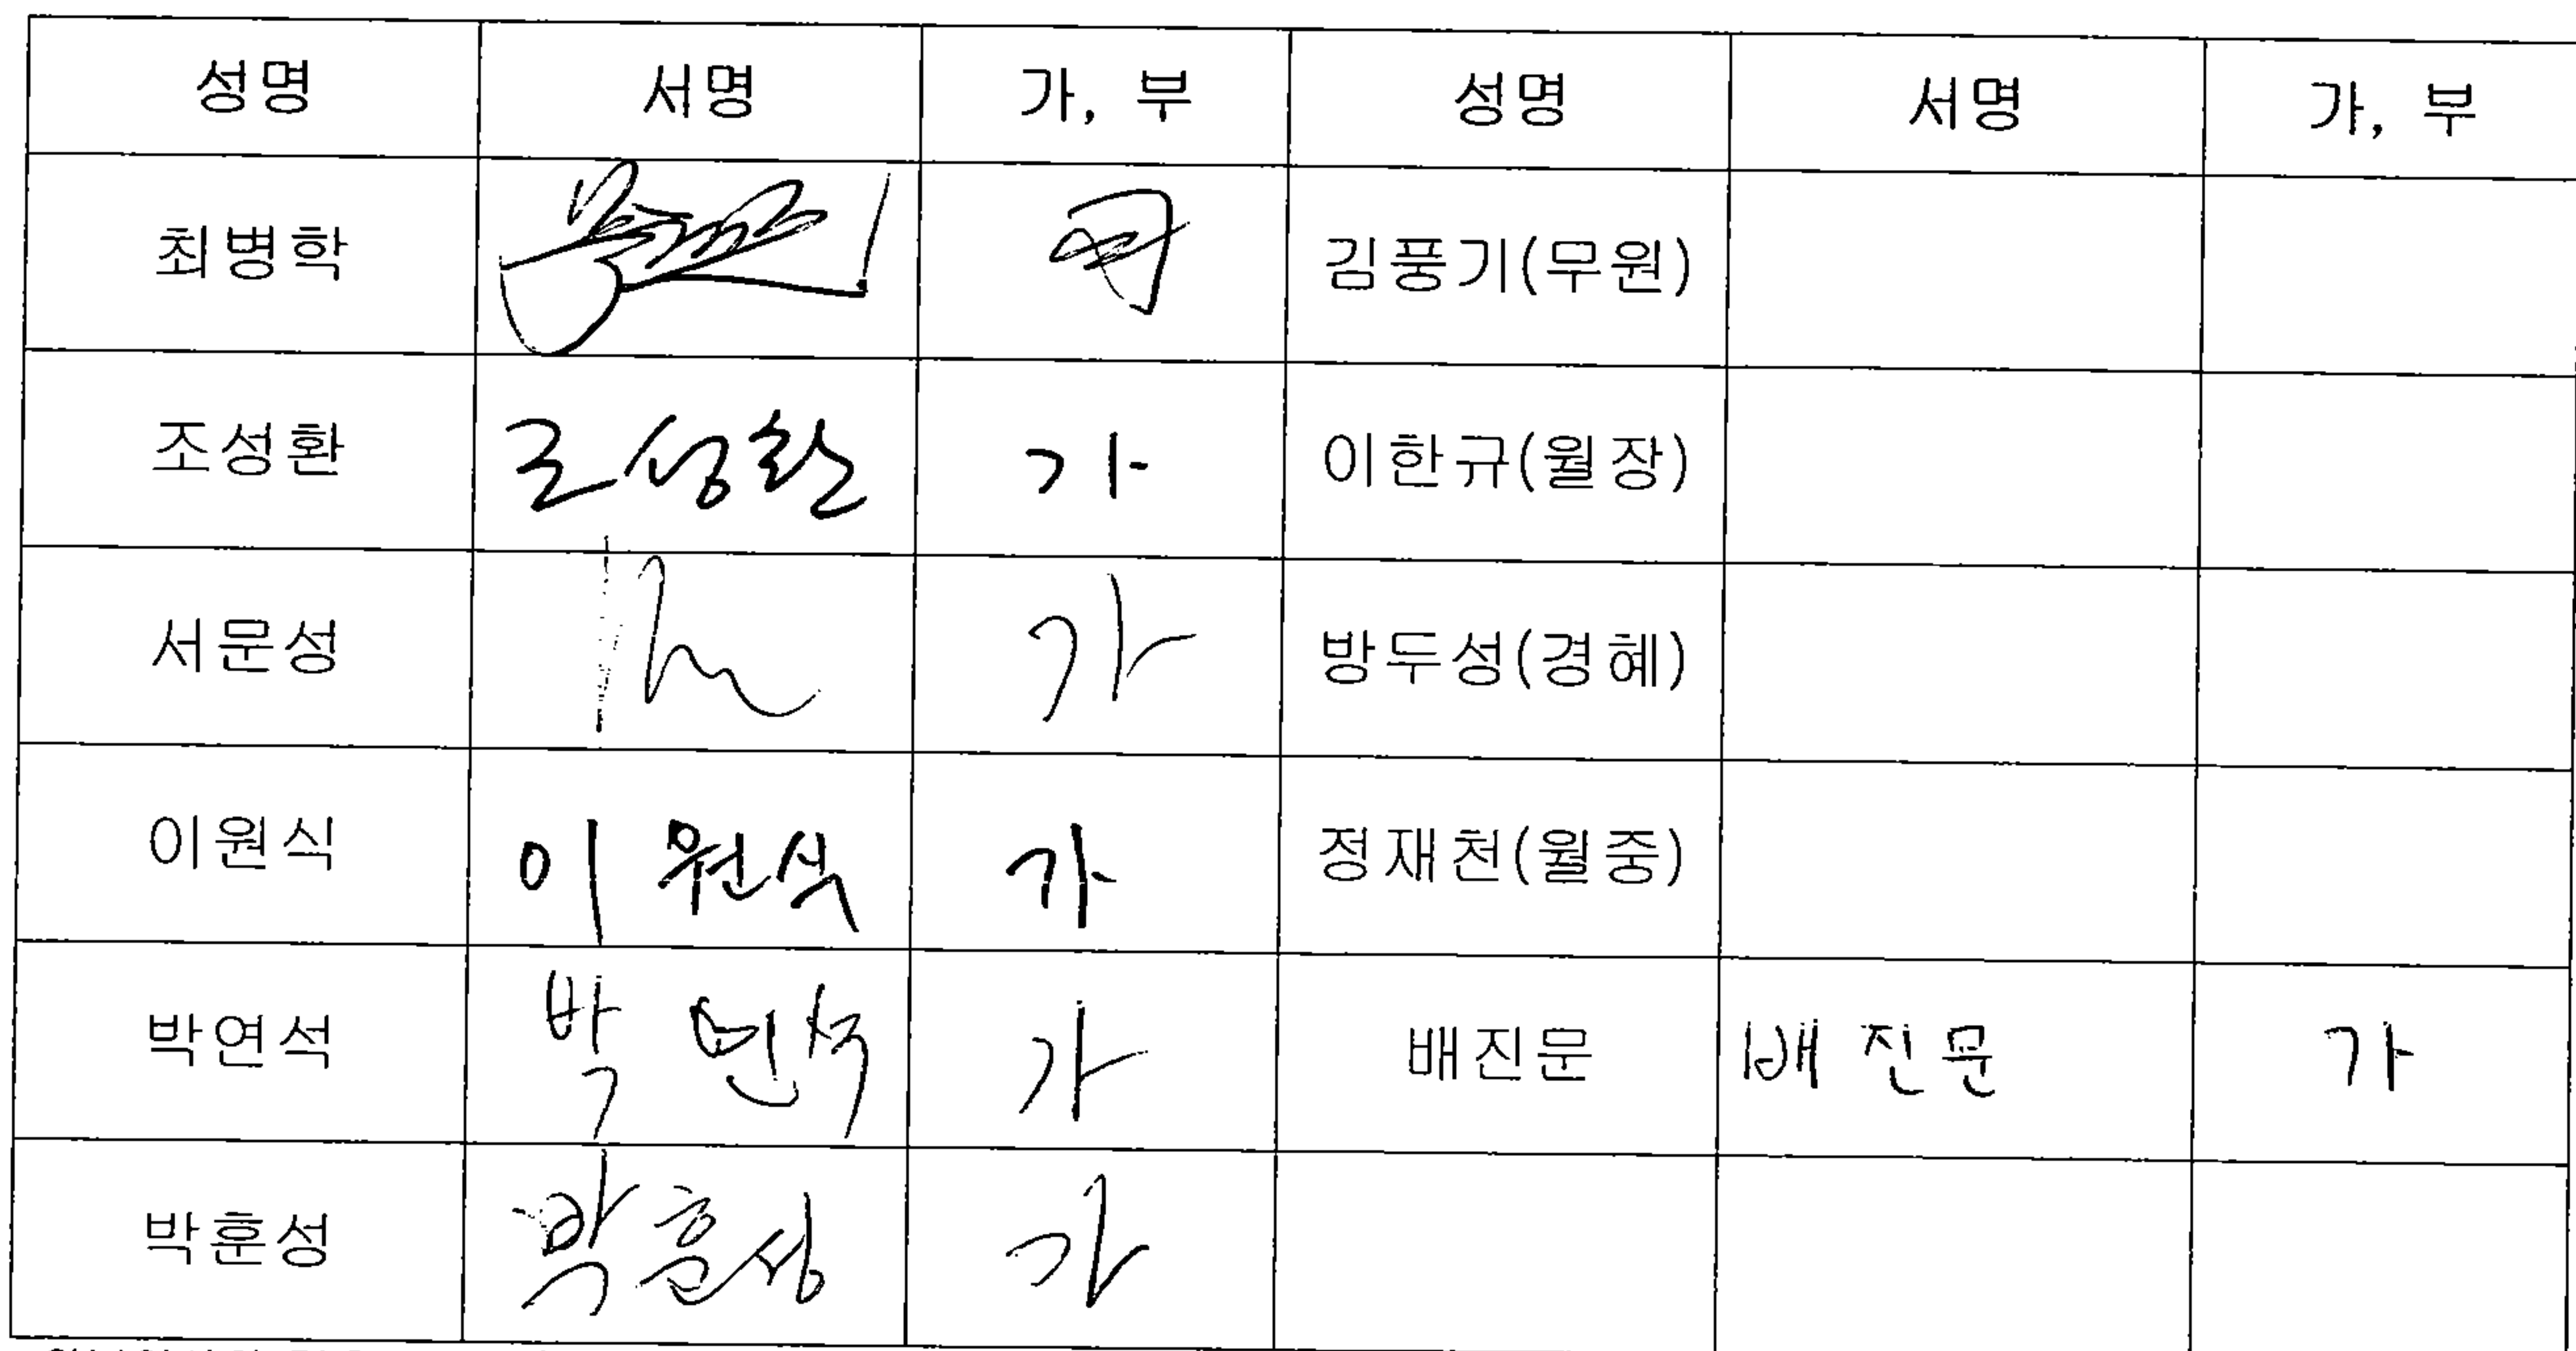 성명 서명 가, 부 성명 서명 가, 부
최병학 김풍기(무원)
조성환 조성환 가 이한규(월장)
서문성 가 방두성(경혜)
이원식 이원식 가 정재천(월중)
박연석 박연석 가 배진문 배진문 가
박훈성 박훈성 가